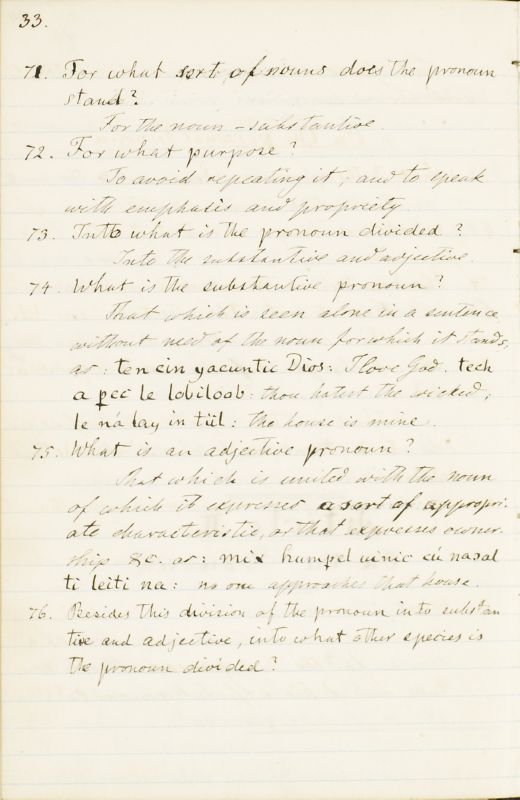 33.
71. For what sort of nouns does the pronoun
stand?
For the noun - substantive.
72. For what purpose?
To avoid repeating it; and to speak
with emphasis and propriety
73. Into what is the pronoun divided?
Into the substantive and adjective.
74. What is the substantive pronoun?
That which is seen alone in a sentence
without need of the noun for which it stands,
as: ten cin yacuntic Dios: I love God. tech
a pec le lobiloob: thou hatest the wicked;
le ná lay in tiil: the house is mine.
75. What is an adjective pronoun?
That which is united with the noun
of which it expresses a sort of appropri-
ate characteristic, or that expresses owner-
ship &c. as: mix humpel uinic cú nasal
ti leiti na: no one approaches that house.
76. Besides this division of the pronoun into substan
tive and adjective, into what other species is
the pronoun divided?